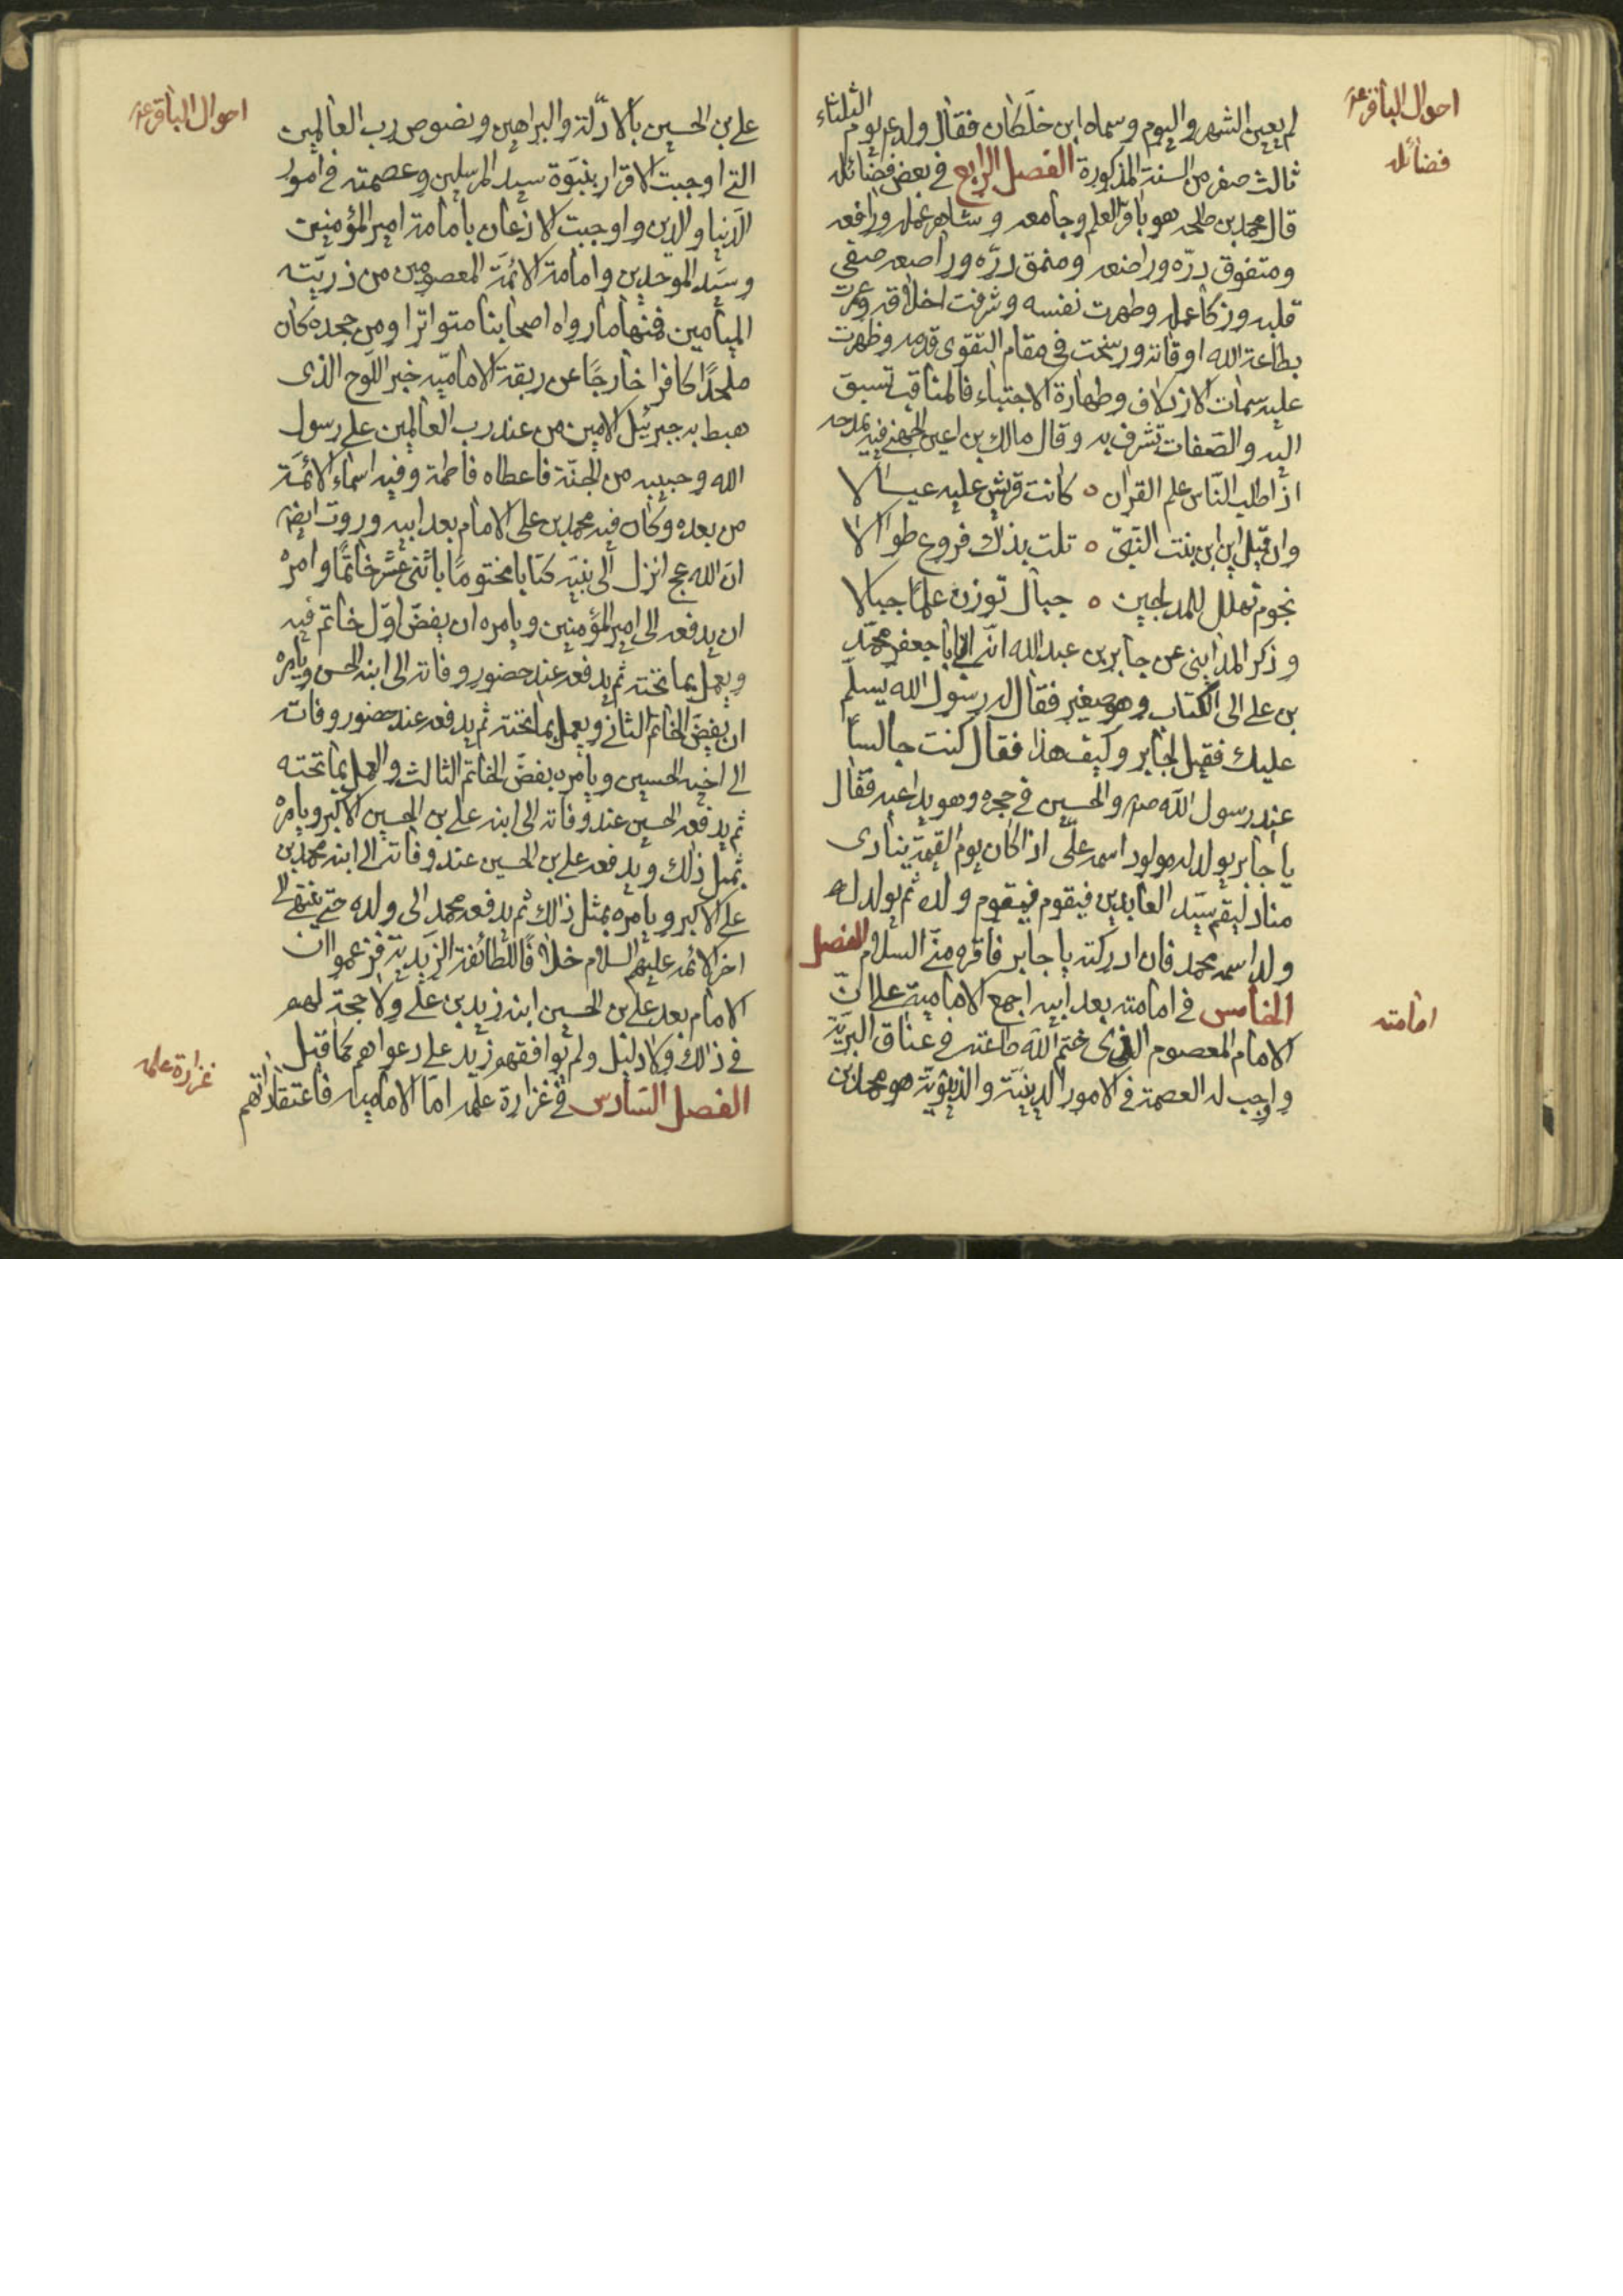 احوال الباقر ع
فضائله
لم يعين الشهر واليوم وسماه ابن خلكان فقال ولد ع يوم الثلثاء
ثالث صفر من السنة المذكورة الفصل الرابع في بعض فضائله
قال محمد بن طلحه هو باقر العلم وجامعه وشاهر علمه ورافعه
ومتفوق درّه وراضعه ومنمق درّه وراصعه صفى
قلبه وزكا عمله وطهرت نفسه وشرفت اخلاقه وعمرت
بطاعة الله اوقاته ورسخت في مقام التقوى قدمه وظهرت
عليه سمات الازدلاف وطهارة الاجتباء فالمناقب تسبق
اليه والصّفات تشرف به وقال مالك بن اعين الجهني فيه يمدحه
اذا طلب النّاس علم القران ه كانت قريش عليه عيالا
وان قيل اين ابن بنت النّبيّ ه تلت بذلك فروع طوالا
نجوم تهلل للمدلجين ه جبال توزن علمًا جبالا
وذكر المدايني عن جابر بن عبد الله انّه اتى ابا جعفر محمّد
بن على الى الكتاب وهو صغير فقال له رسول الله يسلّم
عليك فقيل لجابر وكيف هذا فقال كنت جالسًا
عند رسول اللّه ص والحسين في حجره وهو يداعبه فقال
يا جابر يولد له مولود اسمه علىّ اذا كان يوم القيمة ينادى
مناد ليقم سيّد العابدين فيقوم فيقوم ولده ثم يولد له
ولد اسمه محمد فان ادركته يا جابر فاقره منّى السلام الفصل
الخامس في امامته بعد ابيه اجمع الامامية على انّ
امامته
الامام المعصوم الذى ختم اللّه طاعته في عناق البريّة
واوجب له العصمة في الامور الدينيّة والدنيويّة هو محمد بن
احوال الباقر ع
على بن الحسين بالادلّة والبراهين ونصوص رب العالمين
التي اوجبت الاقرار بنبوّة سيد المرسلين وعصمته في امور
الدّنيا والدين واوجبت الاذعان بامامة امير المؤمنين
وسيّد الموحدين وامامة الائمّة المعصومين من ذريّته
الميامين فمنها ما رواه اصحابنا متواترا ومن جحده كان
ملحدًا كافرا خارجًا عن ربقة الاماميّه خبر اللّوح الذى
هبط به جبرئيل الامين من عند رب العالمين على رسول
الله وحبيبه من الجنّة فاعطاه فاطمة وفيه اسماء الائمّة
من بعده وكان فيه محمد بن على الامام بعد ابيه وروت ايضا
انّ الله عج انزل الى نبيّه كتابا مختومًا باثنى عشر خاتمًا وامره
ان يدفعه الى امير المؤمنين ويامره ان يفضّ اوّل خاتم فيه
ويعمل بما تحته ثم يدفعه عند حضور وفاته الى ابنه الحسن ويامره
ان يفضّ الخاتم الثاني ويعمل بما تحته ثم يدفعه عند حضور وفاته
الى اخيه الحسين ويامره بفضّ الخاتم الثالث والعمل بما تحته
ثم يدفعه الحسين عند وفاته الى ابنه على بن الحسين الاكبر ويامره
بمثل ذلك ويدفعه على بن الحسين عند وفاته الى ابنه محمد بن
على الاكبر ويامره بمثل ذالك ثم يدفعه محمد الى ولده حتى ينتهى الى
اخر الائمه عليهم السلام خلافًا للطائفة الزيدية فزعموا ان
الامام بعد على بن الحسين ابنه زيد بن على ولا حجة لهم
في ذالك ولا دليل ولم يوافقهم زيد على دعواهم كما قيل
غزارة علمه
الفصل السّادس في غزارة علمه امّا الامامية فاعتقاداتهم